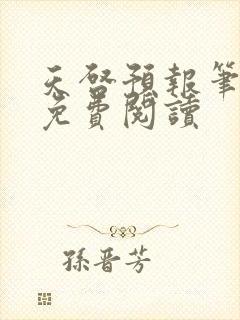 天啓預報筆
免費閱讀
孫晋芳